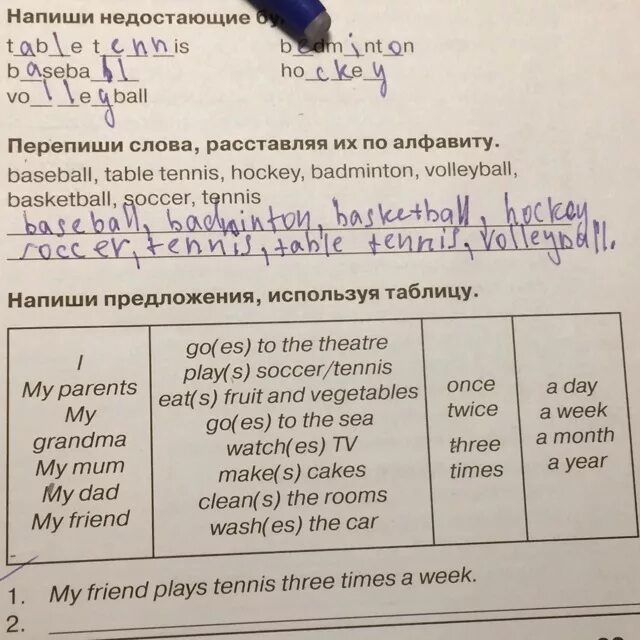 Напиши недостающие бу
table tennis
badminton
baseball
hockey
volleyball
Перепиши слова, расставляя их по алфавиту.
baseball, table tennis, hockey, badminton, volleyball,
basketball, soccer, tennis
baseball, badminton, basketball, hockey
soccer, tennis, table tennis, volleyball.
Напиши предложения, используя таблицу.
I
My parents
My
grandma
My mum
My dad
My friend
go(es) to the theatre
play(s) soccer/tennis
eat(s) fruit and vegetables
go(es) to the sea
watch(es) TV
make(s) cakes
clean(s) the rooms
wash(es) the car
once
twice
three
times
a day
a week
a month
a year
1. My friend plays tennis three times a week.
2.